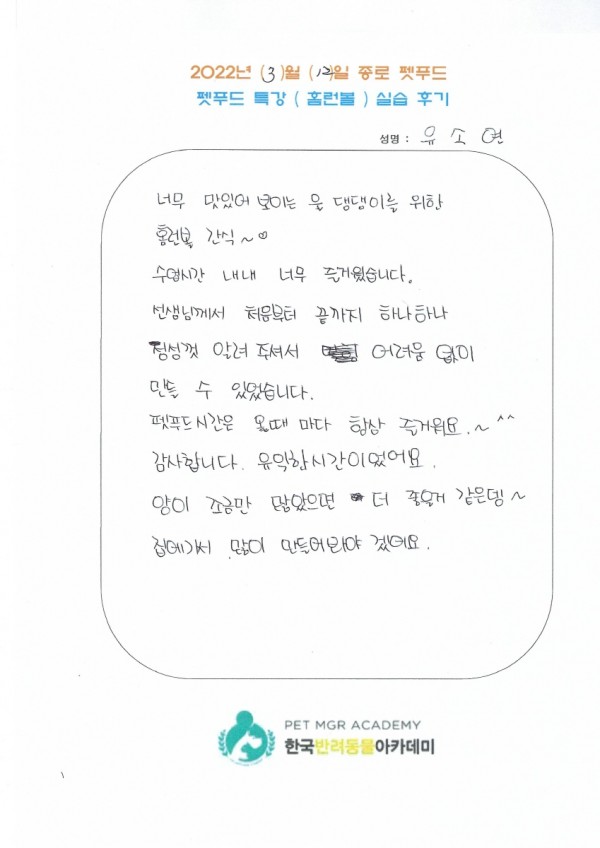 2022년 (3)월 (12)일 종로 펫푸드
펫푸드 특강 ( 홈런볼 ) 실습 후기
성명 : 유소연
너무 맛있어 보이는 울 댕댕이를 위한
홈런볼 간식~♡
수업시간 내내 너무 즐거웠습니다.
선생님께서 처음부터 끝까지 하나하나
정성껏 알려 주셔서 어려움 없이
만들 수 있었습니다.
펫푸드시간은 올때 마다 항상 즐거워요.~^^
감사합니다. 유익한시간이었어요.
양이 조금만 많았으면 더 좋을거 같은뎅~
집에가서 많이 만들어봐야 겠어요.
PET MGR ACADEMY
한국반려동물아카데미